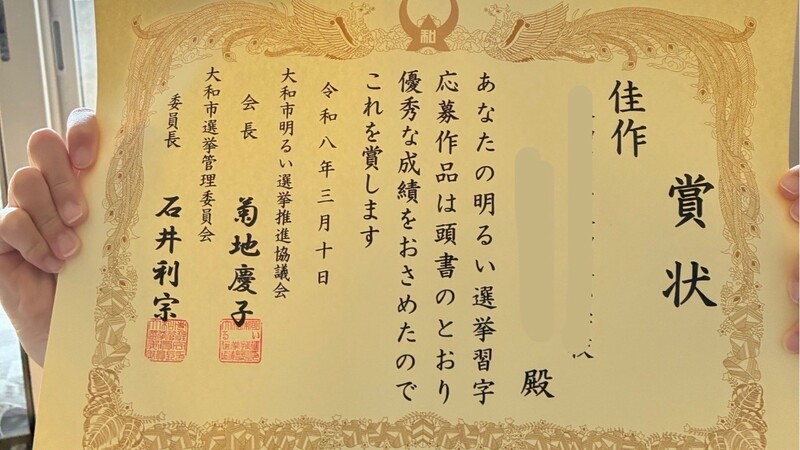 賞状
佳作
殿
あなたの明るい選挙習字
応募作品は頭書のとおり
優秀な成績をおさめたので
これを賞します
令和八年三月十日
大和市明るい選挙推進協議会
会長 菊地慶子
大和市選挙管理委員会
委員長 石井利宗